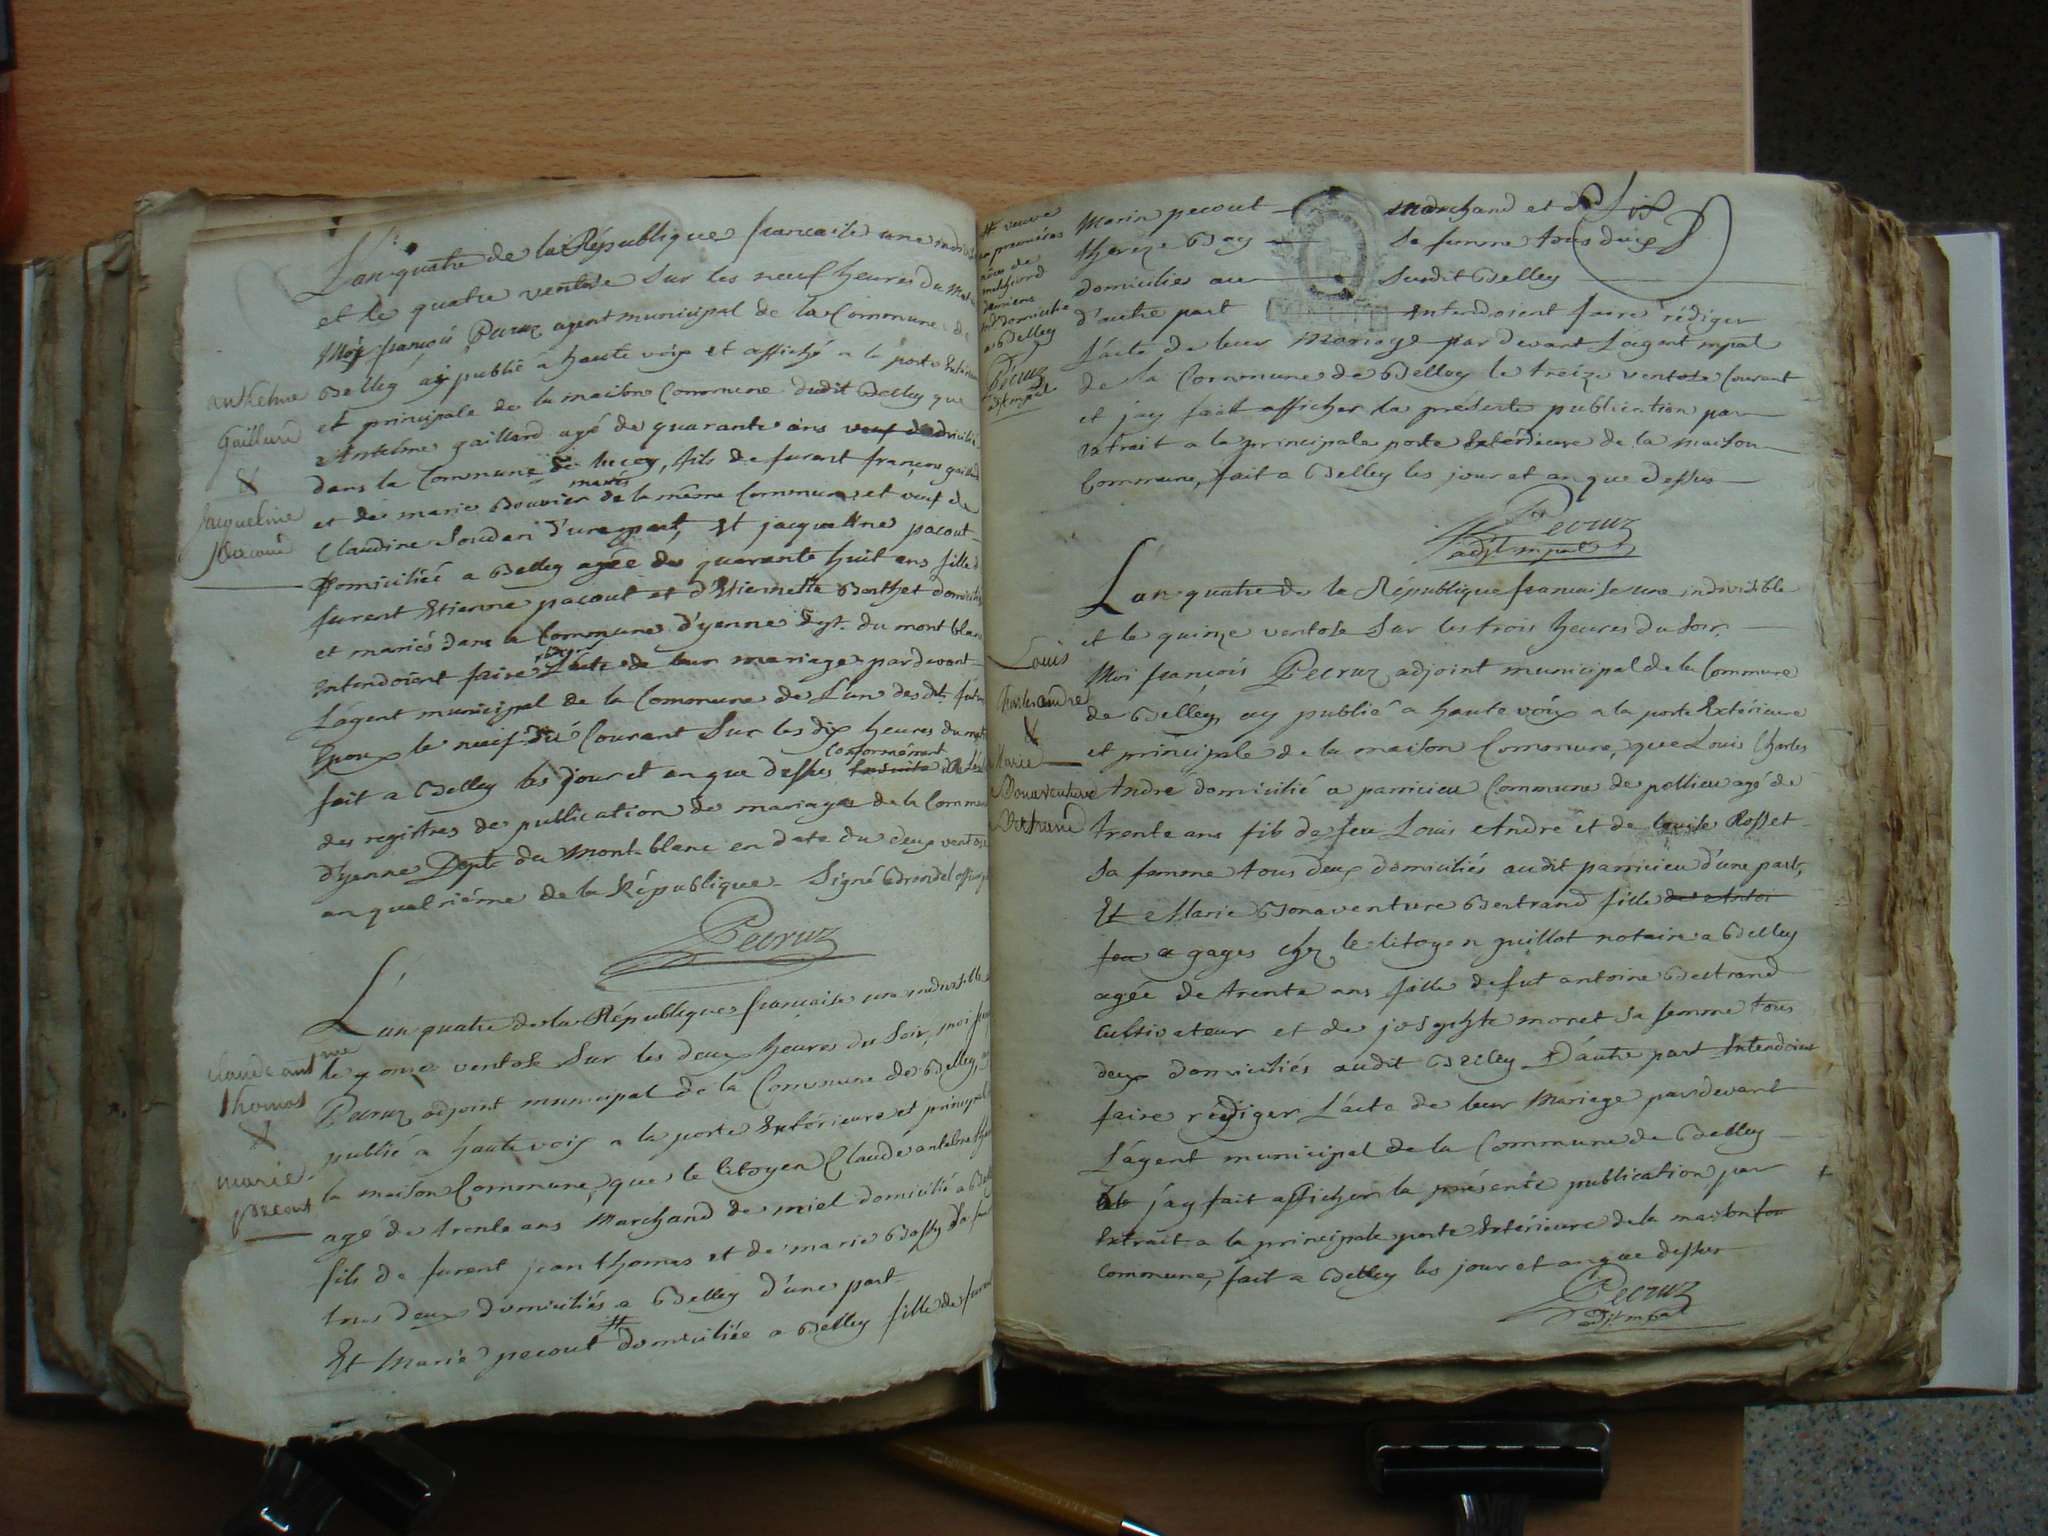 L'an quatre de la République française une indivisi
et le quatre ventose sur les neuf heures du mat
Moy françois Pecruz agent municipal de la Commune de
Belley ay publié a haute voix et affiché a la porte Exterieure
et principale de la maison Commune dudit Belley que
Antelme gaillard agé de quarante ans veuf domicilié
dans la Commune de fils de furent françois gaillard
et de marie Bouvier mariés de la même Commune et veuf de
Claudine d'une part, Et jacqueline pacout
Domiciliée a Belley agée de quarante huit ans fille de
furent Etienne pacout et d'Etiennette Berthet domiciliés
et mariés dans la Commune d'yenne Dpt. du mont blanc
Entendoient faire rédiger L'acte de leur mariage pardevant
L'agent municipal de la Commune de L'un des dits futurs
Epoux le neuf du Courant Sur les dix heures du mat
fait a Belley les jour et an que dessus Conformément
des registres de publication de mariages de la Commune
d'yenne Depte du Mont-blanc en date du deux ventose
an quatrième de la République. Signé
Pecruz
anthelme
Gaillard
&
Jacqueline
Pacout
L'an quatre de la République française une indivisible
le onze ventose Sur les deux heures du Soir, moi
Pecruz adjoint municipal de la Commune de Belley, ay
publié a haute voix a la porte Extérieure et principale
la maison Commune, que le Citoyen Claude antelme thomas
agé de trente ans Marchand de miel domicilié a Belley
fils de furent jean thomas et de marie Sa femme
tous deux domiciliés a Belley d'une part
Et Marie pecout # domiciliée a Belley fille de furent
Claude antme
Thomas
&
marie
pecout
# veuve
en premieres
noces de
domiciliée
a Belley
Pecruz
adjt mpal
Marin pecout marchand et de
thereze Bay Sa femme tous deux
domicilies au Susdit Belley
d'autre part Entendoient faire rédiger
L'acte de leur Mariage par devant L'agent mpal
de la Commune de Belley le treize ventose Courant
et j'ay fait afficher la présente publication par
Extrait a la principale porte Extérieure de la maison
Commune, fait a Belley les jour et an que dessus
Pecruz
adjt mpal
L'an quatre de la République française une indivisible
et le quinze ventose Sur les trois heures du Soir,
Moi françois Pecruz adjoint municipal de la Commune
de Belley, ay publié a haute voix a la porte Extérieure
et principale de la maison Commune, que Louis Charles
André domicilié a parricieu Commune de pollieu agé de
trente ans fils de feu Louis André et de louise Rosset
Sa femme tous deux domiciliés audit parricieu d'une part,
Et Marie Bonaventure Bertrand fille de Antoi
feu a gages chez le Citoyen guillot notaire a Belley
agée de trente ans fille de fut antoine Bertrand
cultivateur et de josephte moret Sa femme tous
deux domiciliés audit Belley D'autre part Entendoient
faire rédiger L'acte de leur Mariage pardevant
L'agent municipal de la Commune de Belley
j'ay fait afficher la présente publication par
Extrait a la principale porte Extérieure de la maison
Commune, fait a Belley les jour et an que dessus
Pecruz
adjt mpal
Louis
Charles andré
&
Marie
Bonaventure
Bertrand